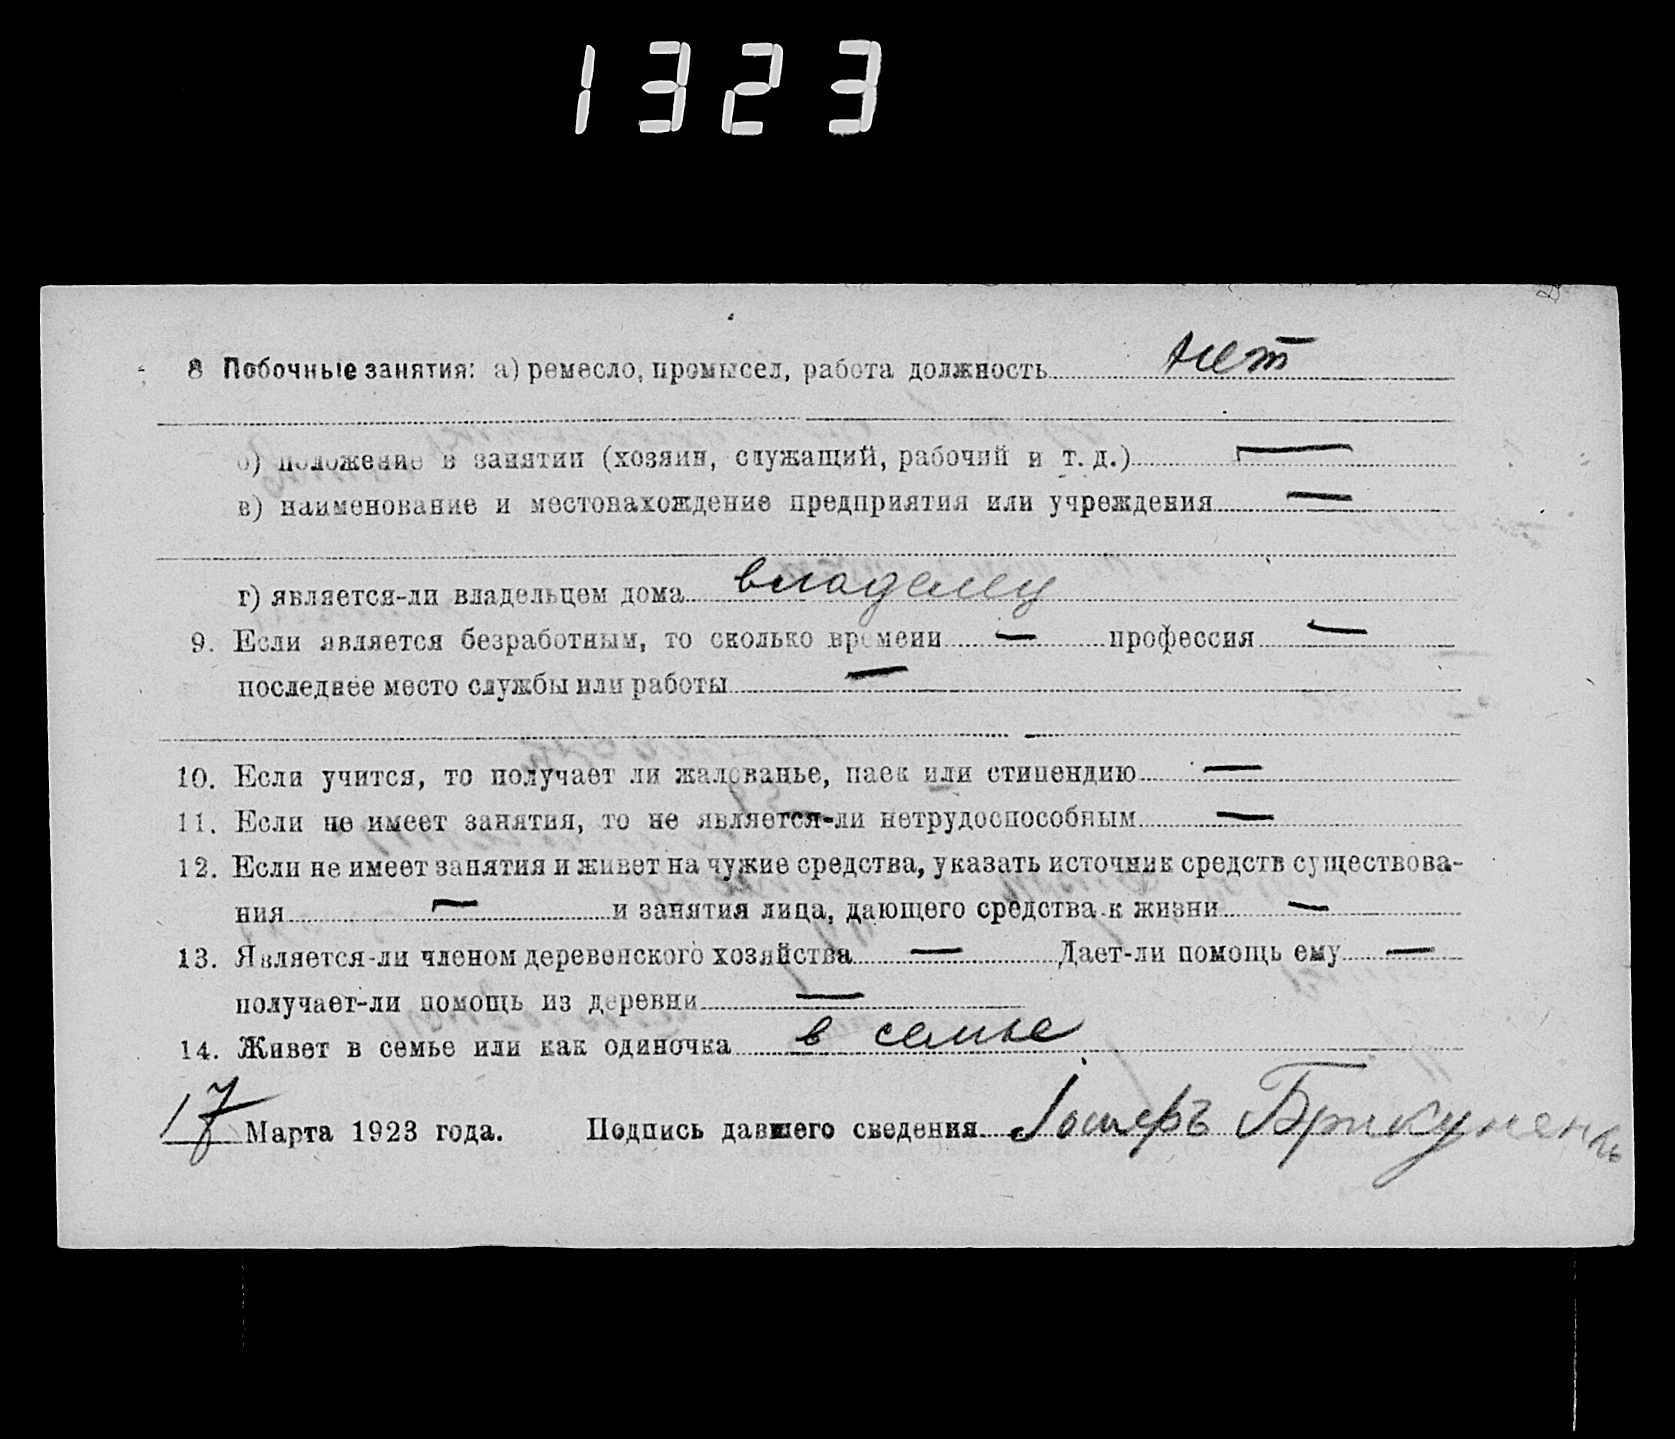 1323
8 Побочные занятия: а) ремесло, промысел, работа должность нет
б) положение в занятии (хозяин, служащий, рабочий и т. д.) —
в) наименование и местовахождение предприятия или учреждения —
г) является-ли владельцем дома владелец
9. Если является безработным, то сколько времени — профессия —
последнее место службы или работы —
10. Если учится, то получает ли жалованье, паек или стипендию —
11. Если не имеет занятия, то не является-ли нетрудоспособным —
12. Если не имеет занятия и живет на чужие средства, указать источник средств существова-
ния — и занятия лица, дающего средства к жизни —
13. Является-ли членом деревенского хозяйства — Дает-ли помощь ему —
получает-ли помощь из деревни —
14. Живет в семье или как одиночка в семье
17 Марта 1923 года. Подпись давшего сведения